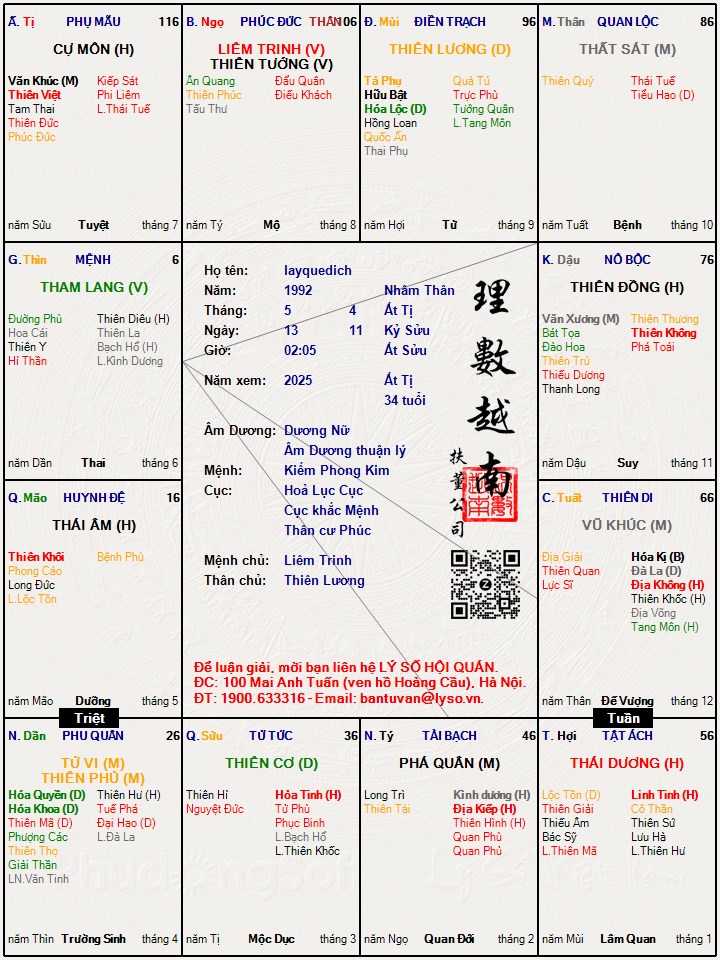 Ấ. Tị PHỤ MẪU 116
CỰ MÔN (H)
Văn Khúc (M) Kiếp Sát
Thiên Việt Phi Liêm
Tam Thai L.Thái Tuế
Thiên Đức
Phúc Đức
năm Sửu Tuyệt tháng 7
B. Ngọ PHÚC ĐỨC THÂN 106
LIÊM TRINH (V)
THIÊN TƯỚNG (V)
Ân Quang Đẩu Quân
Thiên Phúc Điếu Khách
Tấu Thư
năm Tý Mộ tháng 8
Đ. Mùi ĐIỀN TRẠCH 96
THIÊN LƯƠNG (D)
Tả Phụ Quả Tú
Hữu Bật Trực Phù
Hóa Lộc (D) Tướng Quân
Hồng Loan L.Tang Môn
Quốc Ấn
Thai Phụ
năm Hợi Tử tháng 9
M. Thân QUAN LỘC 86
THẤT SÁT (M)
Thiên Quý Thái Tuế
Tiểu Hao (D)
năm Tuất Bệnh tháng 10
G. Thìn MỆNH 6
THAM LANG (V)
Đường Phù Thiên Diêu (H)
Hoa Cái Thiên La
Thiên Y Bạch Hổ (H)
Hỉ Thần L.Kình Dương
năm Dần Thai tháng 6
Họ tên: layquedich
Năm: 1992 Nhâm Thân
Tháng: 5 4 Ất Tị
Ngày: 13 11 Kỷ Sửu
Giờ: 02:05 Ất Sửu
Năm xem: 2025 Ất Tị
34 tuổi
Âm Dương: Dương Nữ
Âm Dương thuận lý
Mệnh: Kiếm Phong Kim
Cục: Hoả Lục Cục
Cục khắc Mệnh
Thân cư Phúc
Mệnh chủ: Liêm Trinh
Thân chủ: Thiên Lương
理數越南
扶董公司
Để luận giải, mời bạn liên hệ LÝ SỐ HỘI QUÁN.
ĐC: 100 Mai Anh Tuấn (ven hồ Hoàng Cầu), Hà Nội.
ĐT: 1900.633316 - Email: bantuvan@lyso.vn.
K. Dậu NÔ BỘC 76
THIÊN ĐỒNG (H)
Văn Xương (M) Thiên Thương
Bát Tọa Thiên Không
Đào Hoa Phá Toái
Thiên Trù
Thiếu Dương
Thanh Long
năm Dậu Suy tháng 11
Q. Mão HUYNH ĐỆ 16
THÁI ÂM (H)
Thiên Khôi Bệnh Phù
Phong Cáo
Long Đức
L.Lộc Tồn
năm Mão Dưỡng tháng 5
C. Tuất THIÊN DI 66
VŨ KHÚC (M)
Địa Giải Hóa Kị (B)
Thiên Quan Đà La (D)
Lực Sĩ Địa Không (H)
Thiên Khốc (H)
Địa Võng
Tang Môn (H)
năm Thân Đế Vượng tháng 12
Triệt
Tuần
N. Dần PHU QUÂN 26
TỬ VI (M)
THIÊN PHỦ (M)
Hóa Quyền (D) Thiên Hư (H)
Hóa Khoa (D) Tuế Phá
Thiên Mã (D) Đại Hao (D)
Phượng Các L.Đà La
Thiên Thọ
Giải Thần
LN.Văn Tinh
năm Thìn Trường Sinh tháng 4
Q. Sửu TỬ TỨC 36
THIÊN CƠ (D)
Thiên Hỉ Hỏa Tinh (H)
Nguyệt Đức Tử Phù
Phục Binh
L.Bạch Hổ
L.Thiên Khốc
năm Tị Mộc Dục tháng 3
N. Tý TÀI BẠCH 46
PHÁ QUÂN (M)
Long Trì Kình dương (H)
Thiên Tài Địa Kiếp (H)
Thiên Hình (H)
Quan Phù
Quan Phủ
năm Ngọ Quan Đới tháng 2
T. Hợi TẬT ÁCH 56
THÁI DƯƠNG (H)
Lộc Tồn (D) Linh Tinh (H)
Thiên Giải Cô Thần
Thiếu Âm Thiên Sứ
Bác Sỹ Lưu Hà
L.Thiên Mã L.Thiên Hư
năm Mùi Lâm Quan tháng 1